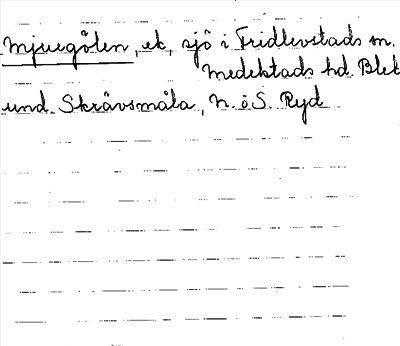 Mjuegölen, ek, sjö i Fridlevstads sn.
Medelstads hd. Blek
und. Skrävsmåla, N. o S. Ryd